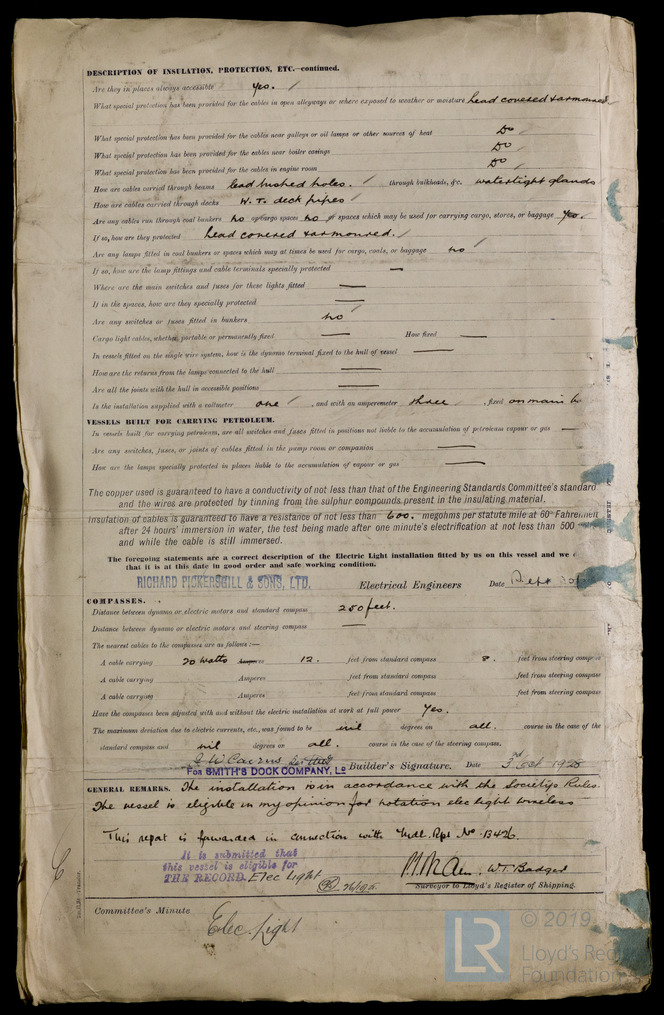 DESCRIPTION OF INSULATION, PROTECTION, ETC.—continued.
Are they in places always accessible yes. /
What special protection has been provided for the cables in open alleyways or where exposed to weather or moisture lead covered & armoured
What special protection has been provided for the cables near galleys or oil lamps or other sources of heat Do /
What special protection has been provided for the cables near boiler casings Do /
What special protection has been provided for the cables in engine room Do /
How are cables carried through beams lead bushed holes. / through bulkheads, &c. watertight glands
How are cables carried through decks W. T. deck pipes /
Are any cables run through coal bunkers no or cargo spaces no or spaces which may be used for carrying cargo, stores, or baggage yes. /
If so, how are they protected lead covered & armoured. /
Are any lamps fitted in coal bunkers or spaces which may at times be used for cargo, coals, or baggage no /
If so, how are the lamp fittings and cable terminals specially protected —
Where are the main switches and fuses for these lights fitted —
If in the spaces, how are they specially protected —
Are any switches or fuses fitted in bunkers no /
Cargo light cables, whether portable or permanently fixed — How fixed —
In vessels fitted on the single wire system, how is the dynamo terminal fixed to the hull of vessel —
How are the returns from the lamps connected to the hull —
Are all the joints with the hull in accessible positions —
Is the installation supplied with a voltmeter one / , and with an amperemeter three / , fixed on main
VESSELS BUILT FOR CARRYING PETROLEUM.
In vessels built for carrying petroleum, are all switches and fuses fitted in positions not liable to the accumulation of petroleum vapour or gas —
Are any switches, fuses, or joints of cables fitted in the pump room or companion —
How are the lamps specially protected in places liable to the accumulation of vapour or gas —
The copper used is guaranteed to have a conductivity of not less than that of the Engineering Standards Committee's standard
and the wires are protected by tinning from the sulphur compounds present in the insulating material.
Insulation of cables is guaranteed to have a resistance of not less than 600. megohms per statute mile at 60° Fahrenheit
after 24 hours' immersion in water, the test being made after one minute's electrification at not less than 500
and while the cable is still immersed.
The foregoing statements are a correct description of the Electric Light installation fitted by us on this vessel and we
that it is at this date in good order and safe working condition.
RICHARD PICKERSGILL & SONS, LTD. Electrical Engineers Date Sept 30
COMPASSES.
Distance between dynamo or electric motors and standard compass 250 feet.
Distance between dynamo or electric motors and steering compass —
The nearest cables to the compasses are as follows:—
A cable carrying 20 watts Amperes 12. feet from standard compass 8. feet from steering compass
A cable carrying Amperes feet from standard compass feet from steering compass
A cable carrying Amperes feet from standard compass feet from steering compass
Have the compasses been adjusted with and without the electric installation at work at full power Yes.
The maximum deviation due to electric currents, etc., was found to be nil degrees on all. course in the case of the
standard compass and nil degrees on all. course in the case of the steering compass.
FOR SMITH'S DOCK COMPANY, LD Builder's Signature. Date 3rd Oct 1925
GENERAL REMARKS. The installation is in accordance with the Society's Rules.
The vessel is eligible in my opinion for notation elec light wireless
This report is forwarded in connection with Mdl. Rpt No. 13426.
It is submitted that
this vessel is eligible for
THE RECORD. Elec Light
W.T. Badger
Surveyor to Lloyd's Register of Shipping.
Committee's Minute
Elec. Light
LR
© 2019
Lloyd's Register
Foundation